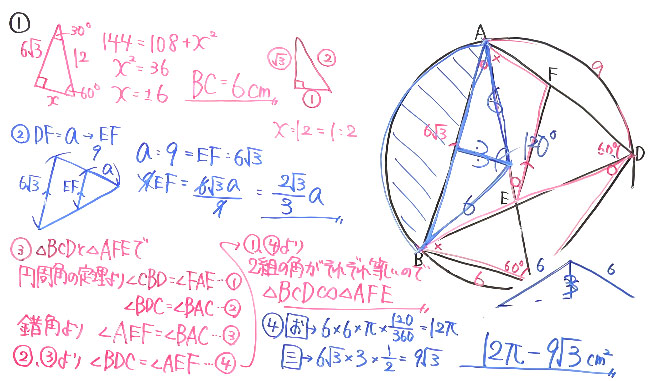 ①
6√3 30° 12 60° x
144=108+x²
x²=36
x=±6
BC=6cm
√3 ② ①
x:12=1:2
② DF=a→EF
9 a 6√3 EF
a:9=EF:6√3
9EF=6√3a/9=2√3/3 a
③ △BCDと△AFEで
円周角の定理より∠CBD=∠FAE…①
∠BDC=∠BAC…②
錯角より ∠AEF=∠BAC…③
②,③より ∠BDC=∠AEF…④
①,④より
2組の角がそれぞれ等しいので
△BCD∽△AFE
④ お→6×6×π×120/360=12π
三→6√3×3×1/2=9√3
12π-9√3 cm²
A
F
9
6√3
6
3
120°
60°
D
E
6
B
6
60°
6
6